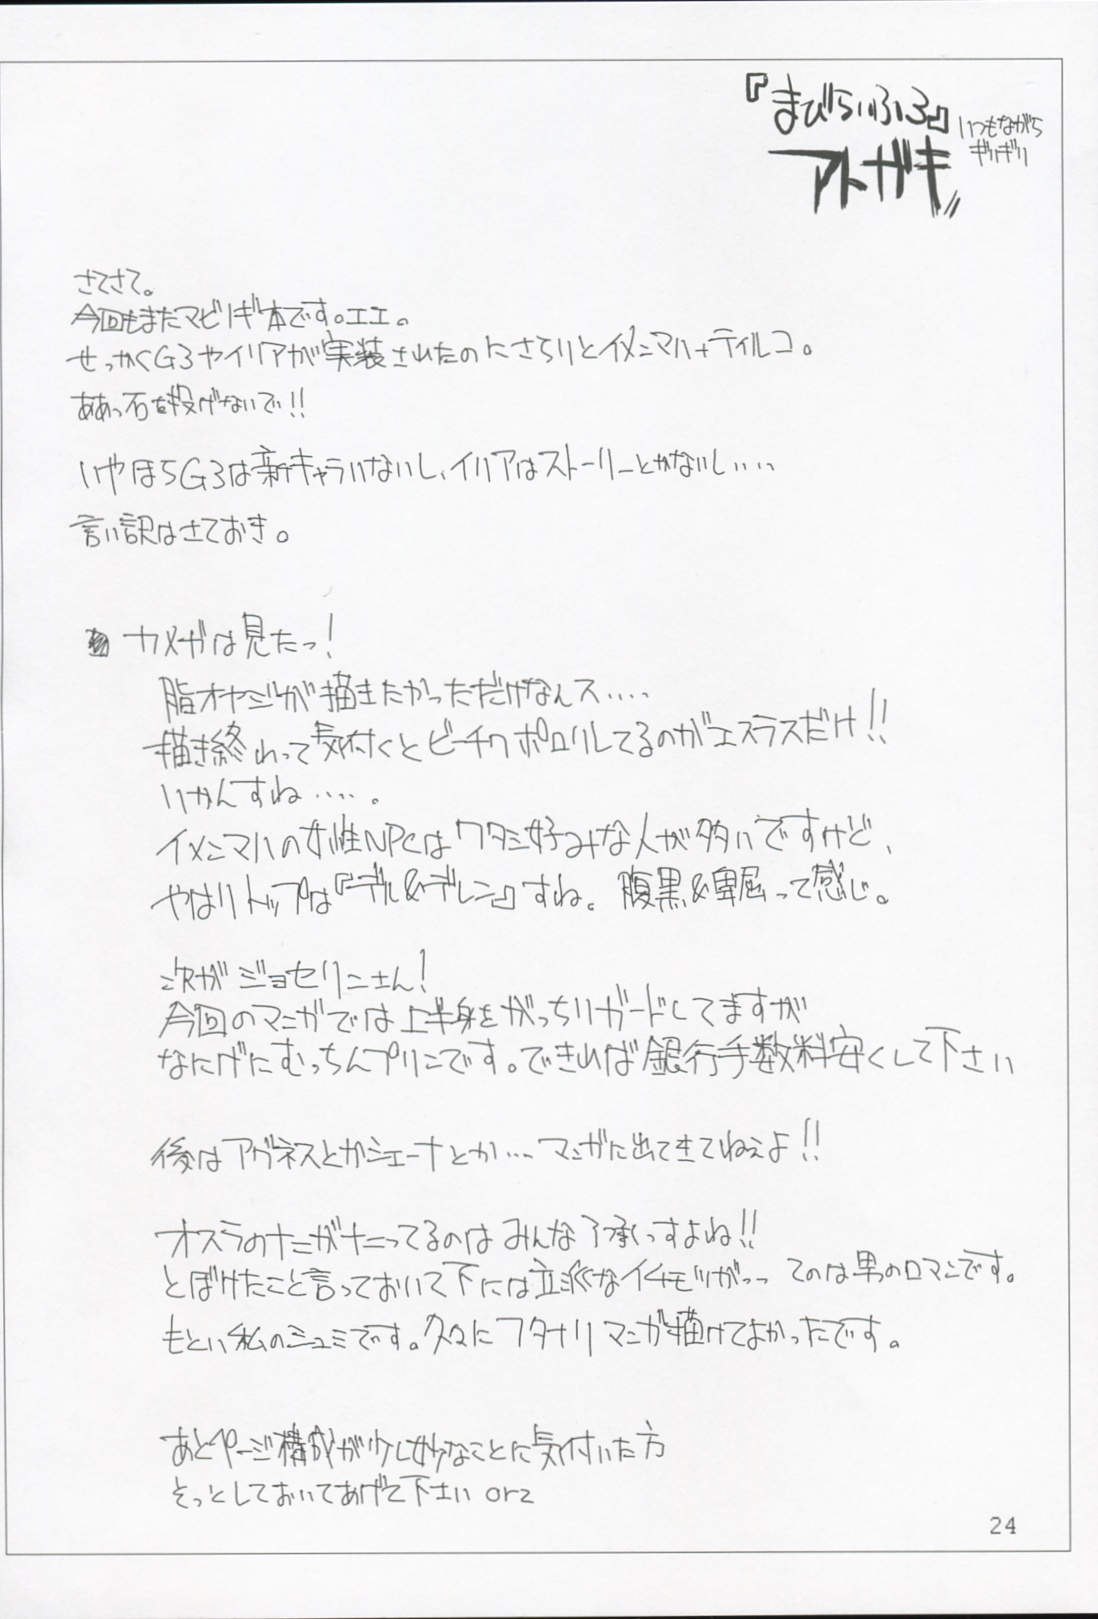 『まびらいふ3』
アトガキ
いつもながら
ギリギリ
さてさて。
今回もまたマビノギ本です。エエ。
せっかくG3やイリアが実装されたのにさらりとイメンマハ+ティルコ。
ああっ石を投げないで!!
いやほらG3は新キャラいないし、イリアはストーリーとかないし‥‥
言い訳はさておき。
カメガは見たっ!
脂オヤジが描きたかっただけなんス‥‥
描き終わって気付くとビーチクポロリしてるのがエスラスだけ!!
いかんすね‥‥。
イメンマハの女性NPCはワタシ好みな人が多いですけど、
やはりトップは『デル&デレン』すね。腹黒&卑屈って感じ。
次がジョセリンさん!
今回のマンガでは上半身をがっちりガードしてますが
なにげにむっちんプリンです。できれば銀行手数料安くして下さい
後はアグネスとかシェーナとか‥‥マンガに出て来てねぇよ!!
オスラのナニがナニってるのはみんな了承っすよね!!
とぼけたこと言っておいて下には立派なイチモツがっっ てのは男のロマンです。
もとい私のシュミです。久々にフタナリマンガ描けてよかったです。
あとページ構成が少し妙なことに気付いた方
そっとしておいてあげて下さい orz
24